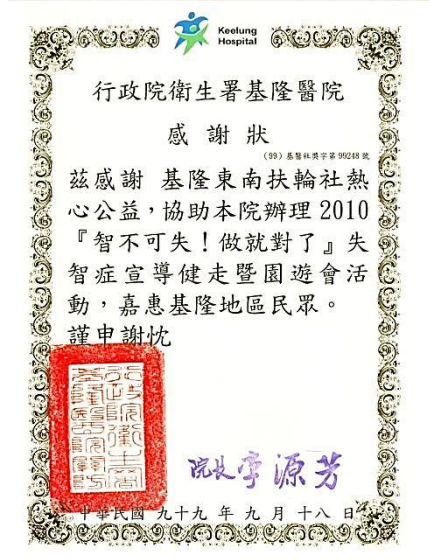 Keelung
Hospital
行政院衛生署基隆醫院
感謝狀
(99)基醫社獎字第99248號
茲感謝 基隆東南扶輪社熱
心公益，協助本院辦理2010
『智不可失！做就對了』失
智症宣導健走暨園遊會活
動，嘉惠基隆地區民眾。
謹申謝忱
院長李源芳
中華民國九十九年九月十八日